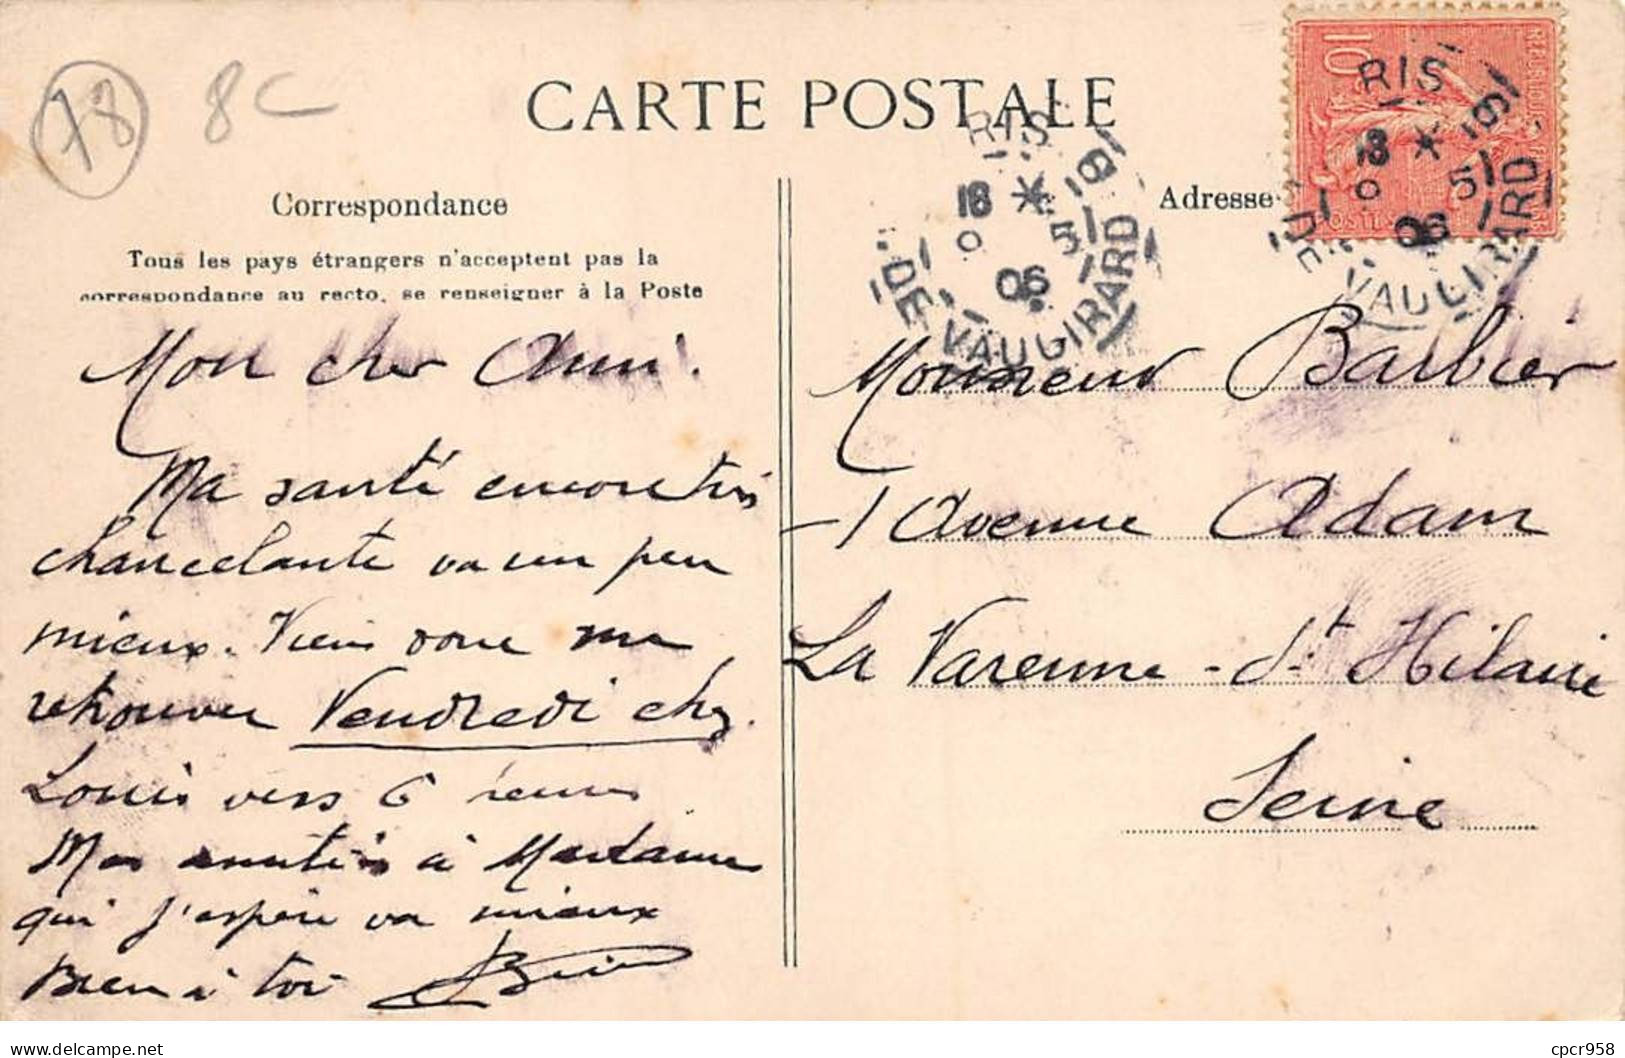 78 8C
CARTE POSTALE
Correspondance
Tous les pays étrangers n'acceptent pas la
correspondance au recto, se renseigner à la Poste
Adresse
RIS
18 * 5
06
R. DE VAUGIRARD
RIS
18 * 5
06
DE VAUGIRARD
10
POSTES
Mon cher Ami!
Ma santé encore très
chancelante va un peu
mieux. Viens donc me
retrouver Vendredi chez
Louis vers 6 heures
Mes amitiés à Madame
qui j'espère va mieux
Bien à toi
Monsieur Barbier
1 Avenue Adam
La Varenne-St Hilaire
Seine
delcampe.net
cpcr958